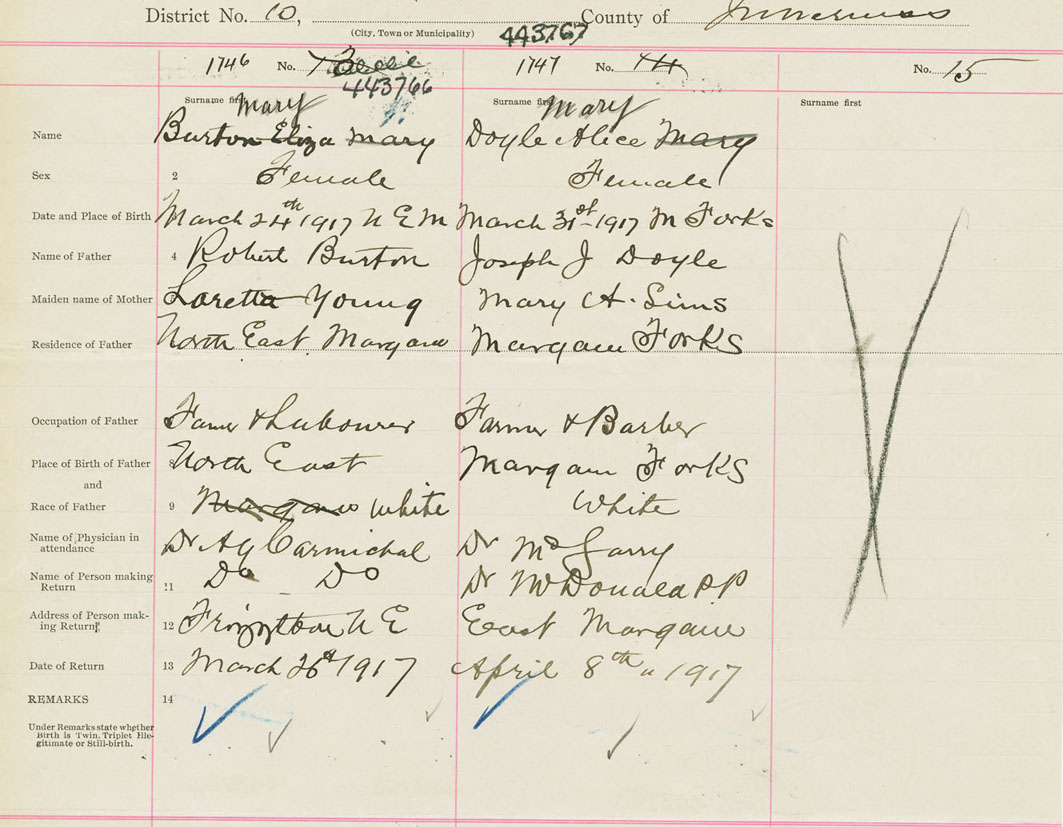 District No. 10, County of Inverness
(City, Town or Municipality) 443767
1746 No. 1747 No. No. 15
443766
Surname first Surname first Surname first
Mary Mary
Name Burton Eliza Mary Doyle Alice Mary
Sex 2 Female Female
Date and Place of Birth March 24th 1917 N E M March 31st 1917 M Forks
Name of Father 4 Robert Burton Joseph J Doyle
Maiden name of Mother Loretta Young Mary A. Sims
Residence of Father North East Margaree Margaree Forks
Occupation of Father Farmer & Labourer Farmer & Barber
Place of Birth of Father North East Margaree Forks
and
Race of Father 9 Margaree White White
Name of Physician in
attendance Dr A G Carmichal Dr McGarry
Name of Person making
Return 11 Do Do Dr McDonald P.P
Address of Person mak-
ing Return 12 N E East Margaree
Date of Return 13 March 26th 1917 April 8th 1917
REMARKS 14
Under Remarks state whether
Birth is Twin, Triplet Ille-
gitimate or Still-birth.